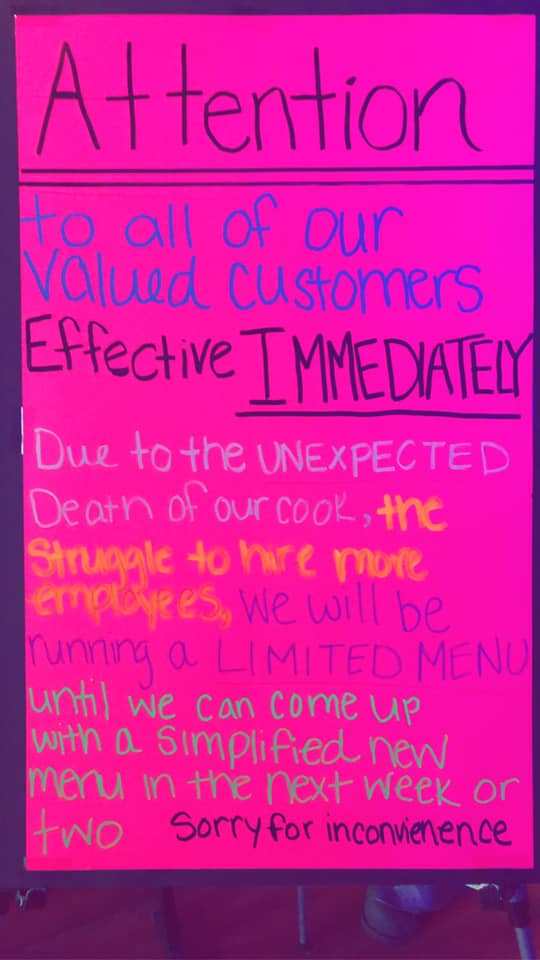 Attention
to all of our
Valued customers
Effective IMMEDIATELY
Due to the UNEXPECTED
Death of our cook, the
Struggle to hire more
employees, we will be
running a LIMITED MENU
until we can come up
with a simplified new
menu in the next week or
two Sorry for inconvienence